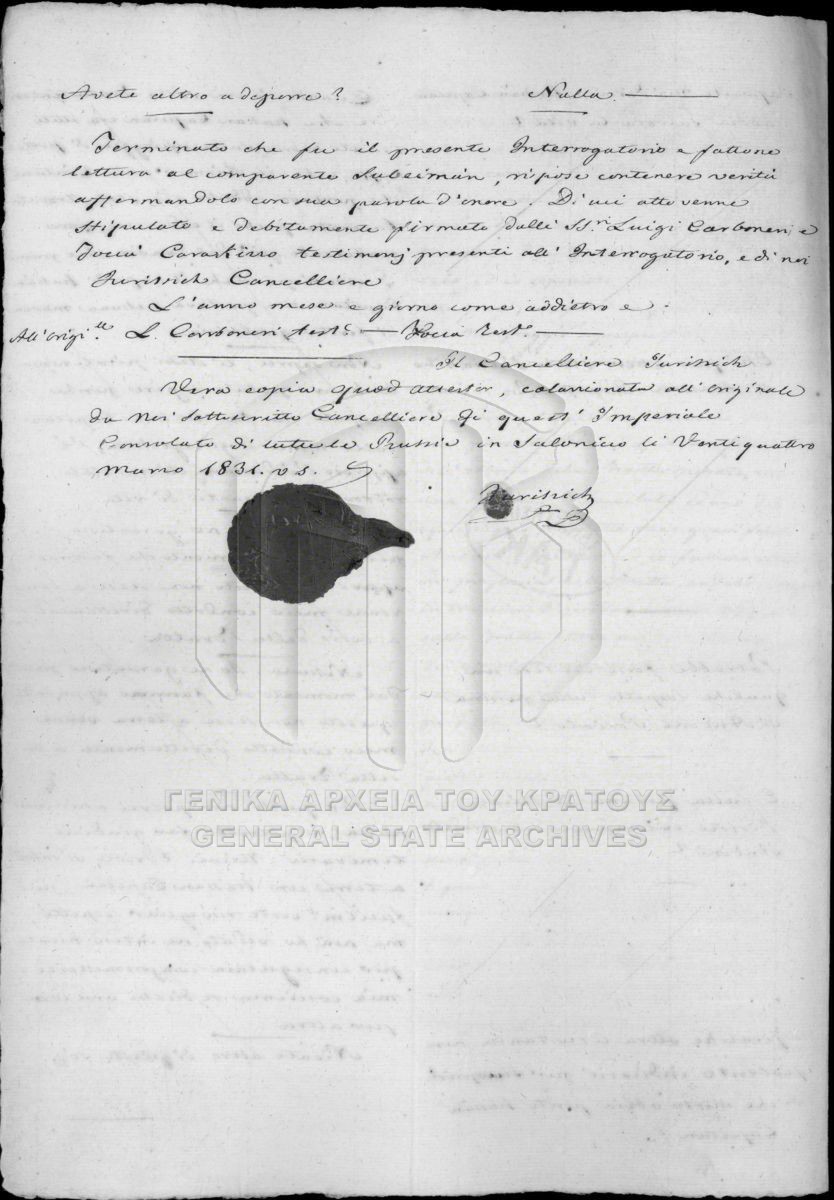 Avete altro a deporre? Nulla.
Terminato che fu il presente Interrogatorio e fattone
lettura al comparente Suleiman, rispose contenere verità
affermandolo con sua parola d'onore. Di cui atto venne
stipulato e debitamente firmato dalli SS.ri Luigi Carboneri e
Joccà testimonj presenti all' Interrogatorio, e di noi
Jurissich Cancelliere
L'anno mese e giorno come addietro e.
All' Origi.le L. Carboneri test.e — Joccà Test.e
Il Cancelliere Jurissich
Vera copia quod attestor, colazionata all' originale
da Noi sottoscritto Cancelliere di quest' Imperiale
Consolato di tutte le Russie in Salonicco li Ventiquattro
Marzo 1831. v s.
Jurissich
ΓΕΝΙΚΑ ΑΡΧΕΙΑ ΤΟΥ ΚΡΑΤΟΥΣ
GENERAL STATE ARCHIVES